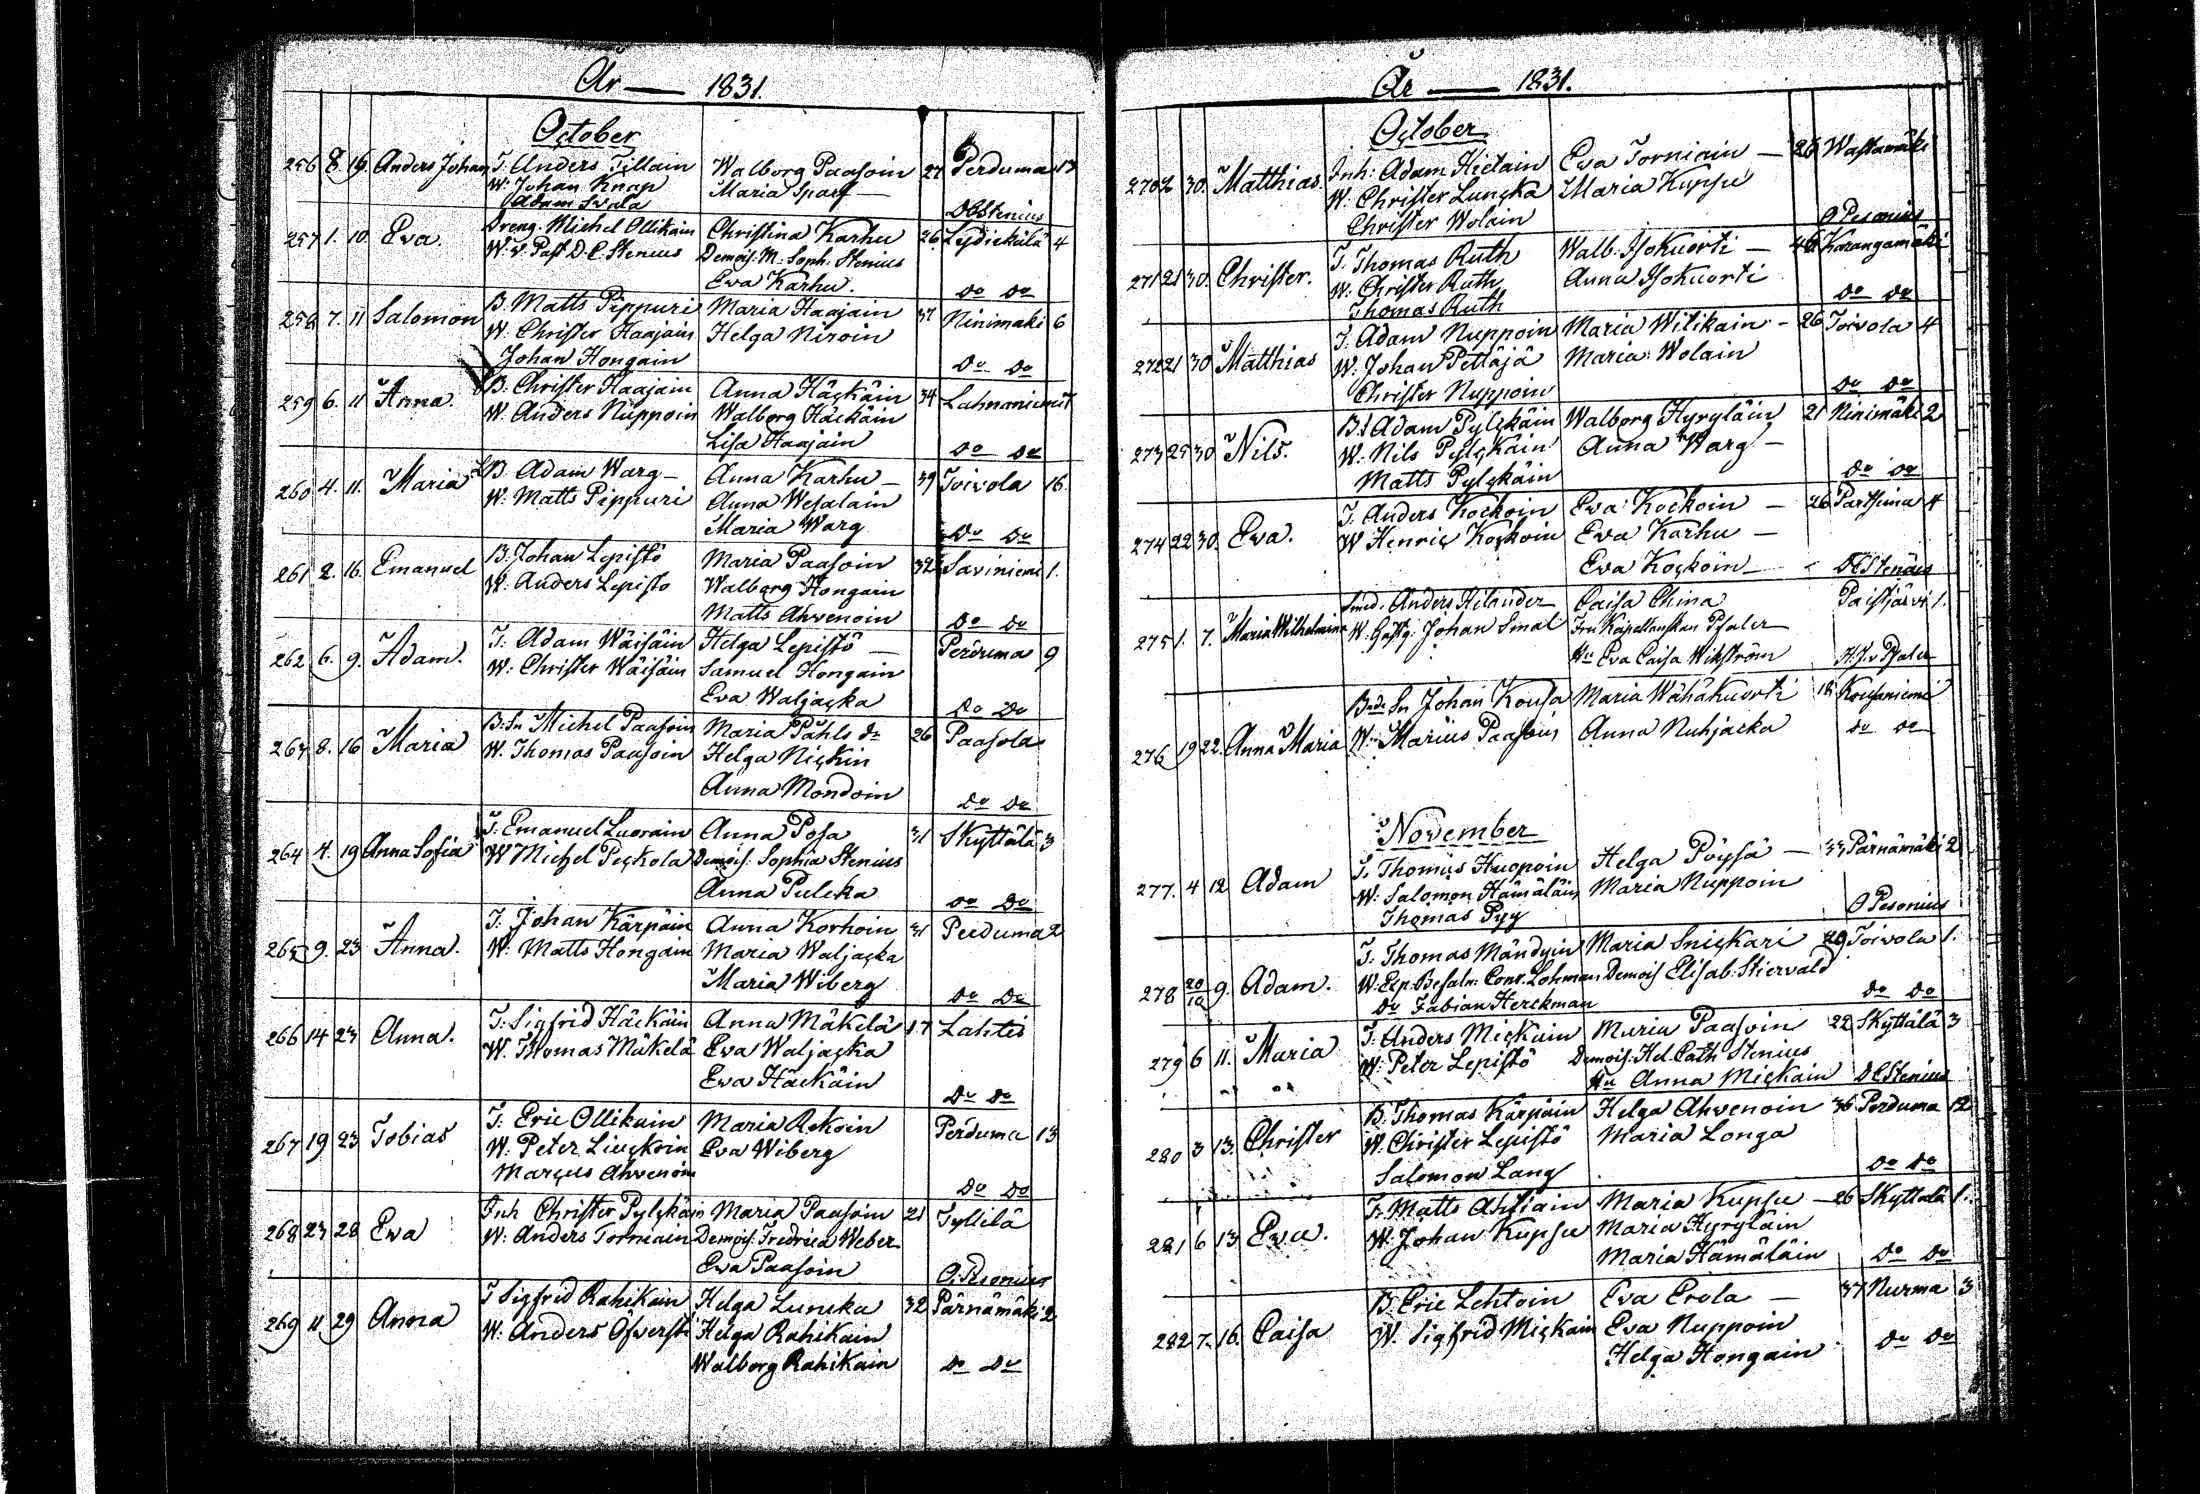 År — 1831.
October
256 8. 16. Anders Johan T. Anders Tillain Walborg Paasoin 27 Perduma 13
W: Johan Knap Maria Sparf —
Adam Svala DEStenius
257 1. 10. Eva. Dreng. Michel Ollikain Christina Karhu 26 Lydiekülä 4
W. v. Past D. E. Stenius Demois: M: Soph: Stenius
Eva Karhu. Do Do
258 7. 11 Salomon B. Matts Pippuri Maria Haajain 37 Ninimäki 6
W. Christer Haajain Helga Niroin
Johan Hongain Do Do
259 6. 11 Anna. B. Christer Haajain Anna Häckäin 34 Lahnaniemi
W. Anders Nuppoin Walborg Häckäin
Lisa Haajain Do Do
260 4. 11. Maria B. Adam Warg — Anna Karhu — 39 Toivola 16.
W. Matts Pippuri Anna Wesalain
Maria Warg Do Do
261 2. 16. Emanuel B. Johan Lepistö Maria Paasoin 32 Saviniemi 1.
W. Anders Lepisto Walborg Hongain
Matts Ahvenoin Do Do
262 6. 9. Adam. T: Adam Wäisäin Helga Lepistö — Perduma 9
W: Christer Wäisäin Samuel Hongain
Eva Waljacka Do Do
263 8. 16 Maria B: Sn Michel Paasoin Maria Påhls dr 26 Paasola
W. Thomas Paasoin Helga Nickin
Anna Mondoin Do Do
264 4. 19 Anna Sofia T. Emanuel Luorain Anna Posa 31 Skyttälä 3
W Michel Peckola Demois: Sophia Stenius
Anna Pulcka Do Do
265 9. 23 Anna. T. Johan Kärpäin Anna Korhoin 31 Perduma 2
W. Matts Hongain Maria Waljacka
Maria Wiberg Do Do
266 14 23 Anna. T: Sigfrid Häckäin Anna Mäkelä 17 Lahtis
W. Thomas Mäkelä Eva Waljacka
Eva Häckäin Do Do
267 19 23 Tobias T: Eric Ollikain Maria Rekoin Perduma 13
W. Peter Liuckoin Eva Wiberg
Marcus Ahvenoin Do Do
268 23 28 Ewa Inh Christer Pylckäin Maria Paasoin 21 Tyllilä
W: Anders Torniain Demois. Fredrica Weber
Eva Paasoin O. Pesonius
269 11 29 Anna T Sigfrid Rahikain Helga Luncka 32 Pärnämäki 2
W. Anders Öfversti Helga Rahikain
Walborg Rahikain Do Do
År — 1831.
October
270 2 30. Matthias. Inh: Adam Hietain Eva Torniain — 26 Wastamäki
W. Christer Luncka Maria Kupsu
Christer Wolain O Pesonius
271 21 30. Christer. T. Thomas Ruth Walb: Isokuorti — 46 Karangamäki
W: Christer Ruth Anna Isokuorti
Thomas Ruth Do Do
272 21 30 Matthias T. Adam Nuppoin Maria Witikain — 26 Toivola 4
W. Johan Pettäjä Maria Wolain
Christer Nuppoin Do Do
273 25 30 Nils. B: Adam Pylckäin Walborg Hyryläin 21 Ninimäki 2
W. Nils Pylckäin Anna Warg —
Matts Pylckäin Do Do
274 22 30. Eva. T. Anders Kockoin Eva Kockoin — 26 Partsima 4
W Henric Kockoin Eva Karhu —
Eva Kockoin — DEStenius
275 1. 7. Maria Wilhelmina Smed. Anders Helander Caisa China Paistjärvi 1.
W. Gästg. Johan Smal Fru Kapellanskan Pfaler
Hu Eva Caisa Wikström H. J. v Pfaler
276 19 22. Anna Maria Bnde Sn Johan Kousa Maria Wähäkuorti 18 Koisaniemi
W. Marius Paasoin Anna Nuhjacka Do Do
November
277. 4 12 Adam T. Thomas Huopoin Helga Pöysä — 33 Pärnämäki 2
W. Salomon Hämäläin Maria Nuppoin
Thomas Pyy O Pesonius
278 20/10 9. Adam. T. Thomas Mändyin Maria Snickari 29 Toivola 1.
W. Exp. Befalm: Conr. Lohman Demois Elisab. Stiervald
Do Fabian Herckman Do Do
279 6 11. Maria T. Anders Mickain Maria Paasoin 22 Skyttälä 3
W. Peter Lepistö Demois: Hel. Cath Stenius
Hu Anna Mickain DEStenius
280 3 13. Christer B. Thomas Kärpäin Helga Ahvenoin 36 Perduma 12
W. Christer Lepistö Maria Longa
Salomon Lang Do Do
281 6 13 Eva. T. Matts Ahtiain Maria Kupsu — 26 Skyttälä 1.
W. Johan Kupsu Maria Hyryläin
Maria Hämäläin Do Do
282 7. 16. Caisa B. Eric Lehtoin Eva Erola — 37 Nurma 3
W. Sigfrid Mickain Eva Nuppoin
Helga Hongain Do Do